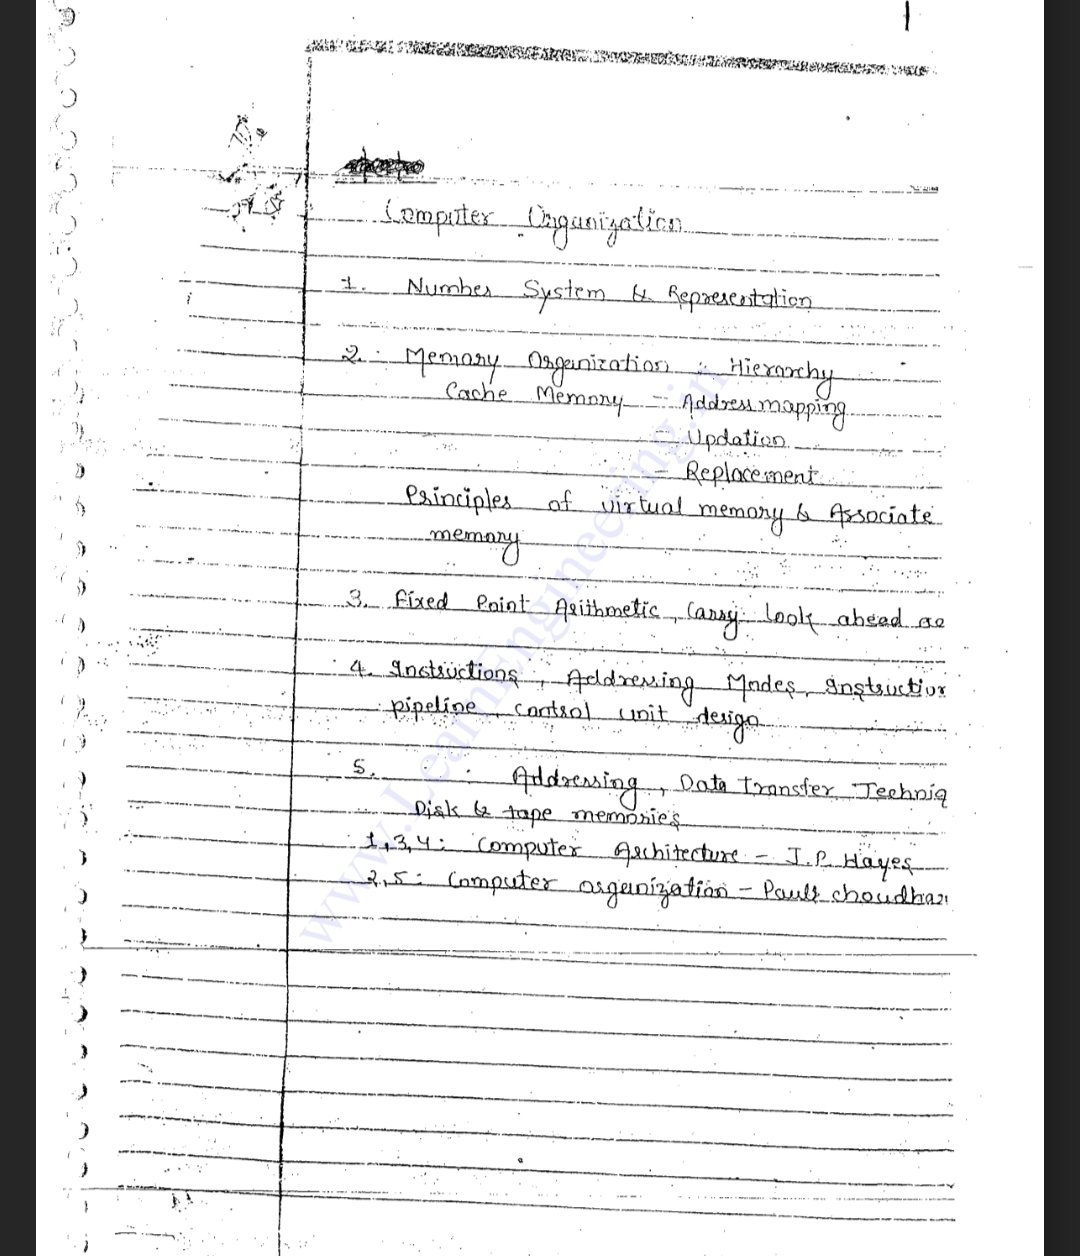 1
Computer Organization
1. Number System & Representation
2. Memory Organization : Hierarchy
Cache Memory - Address mapping
- Updation
- Replacement
Principles of virtual memory & Associate
memory
3. Fixed Point Arithmetic, Carry look ahead
4. Instructions, Addressing Modes, Instruction
pipeline, control unit design
5. : Addressing, Data Transfer Techniq
Disk & tape memories
1,3,4: Computer Architecture - J.P. Hayes
2,5: Computer organization - Pauls choudhari
www.LearnEngineering.in